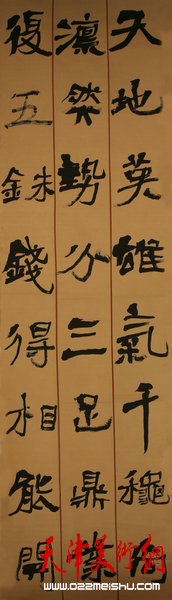 天地英雄氣千龝
澟然勢分三足鼎業
復五銖錢得相能開
天津美術網
www.022meishu.com